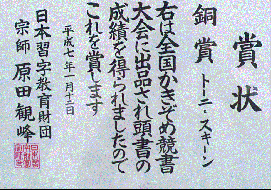 賞状
銅賞 トーニ・スキーン
右は全国かきぞめ競書
大会に出品され頭書の
成績を得られましたので
これを賞します
平成七年一月十二日
日本習字教育財団
宗師 原田観峰